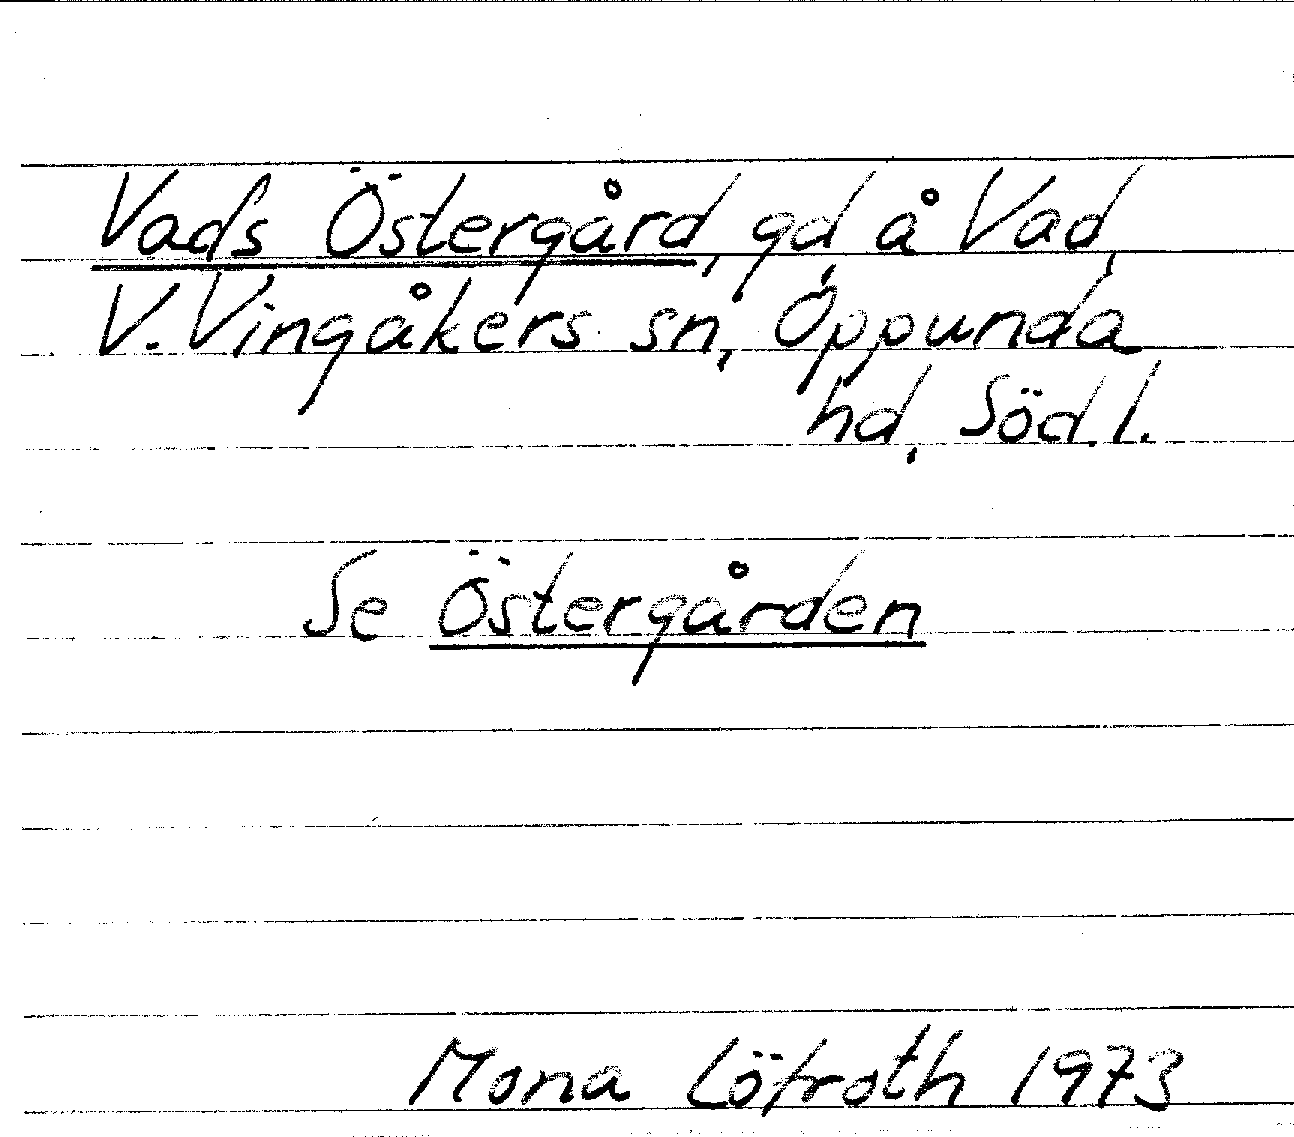 Vads Östergård, gd å Vad,
V. Vingåkers sn, Oppunda
hd, Söd. l.
Se Östergården
Mona Löfroth 1973